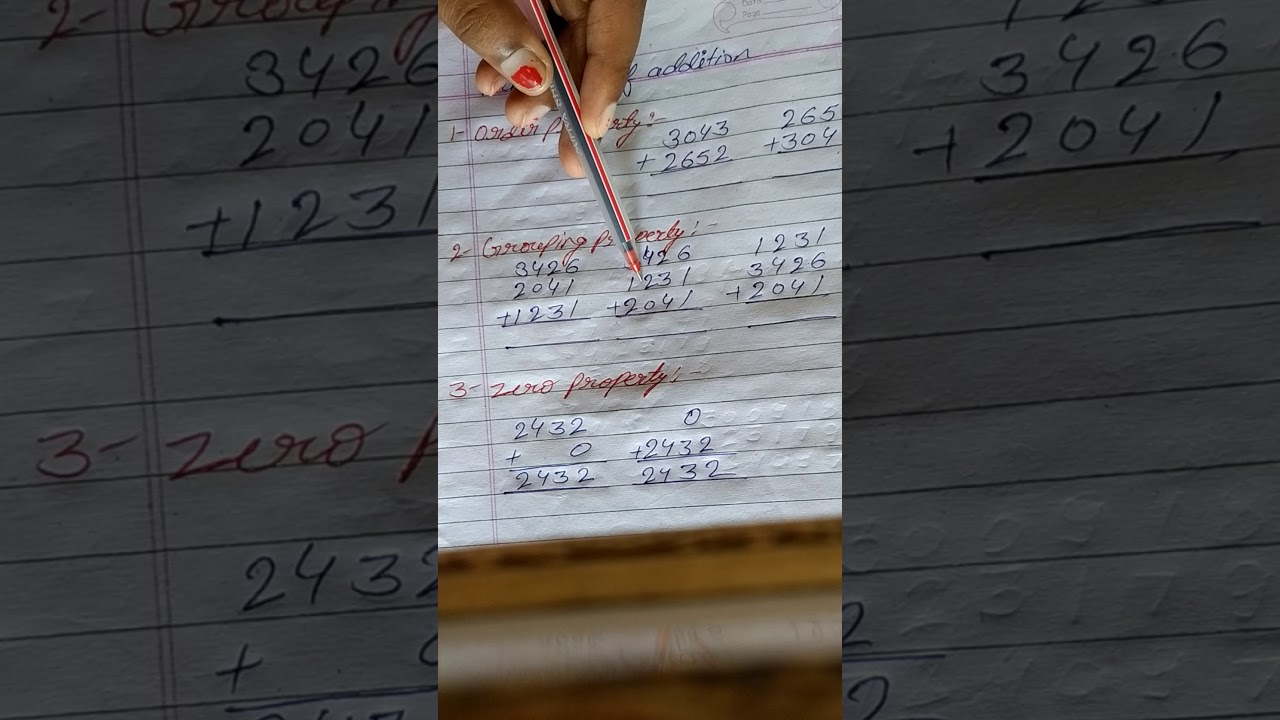 Date
Page
of addition
1- order property:-
3043 265
+2652 +304
2- Grouping property:-
3426 426 1231
2041 1231 3426
+1231 +2041 +2041
3- zero property:-
2432 0
+ 0 +2432
2432 2432